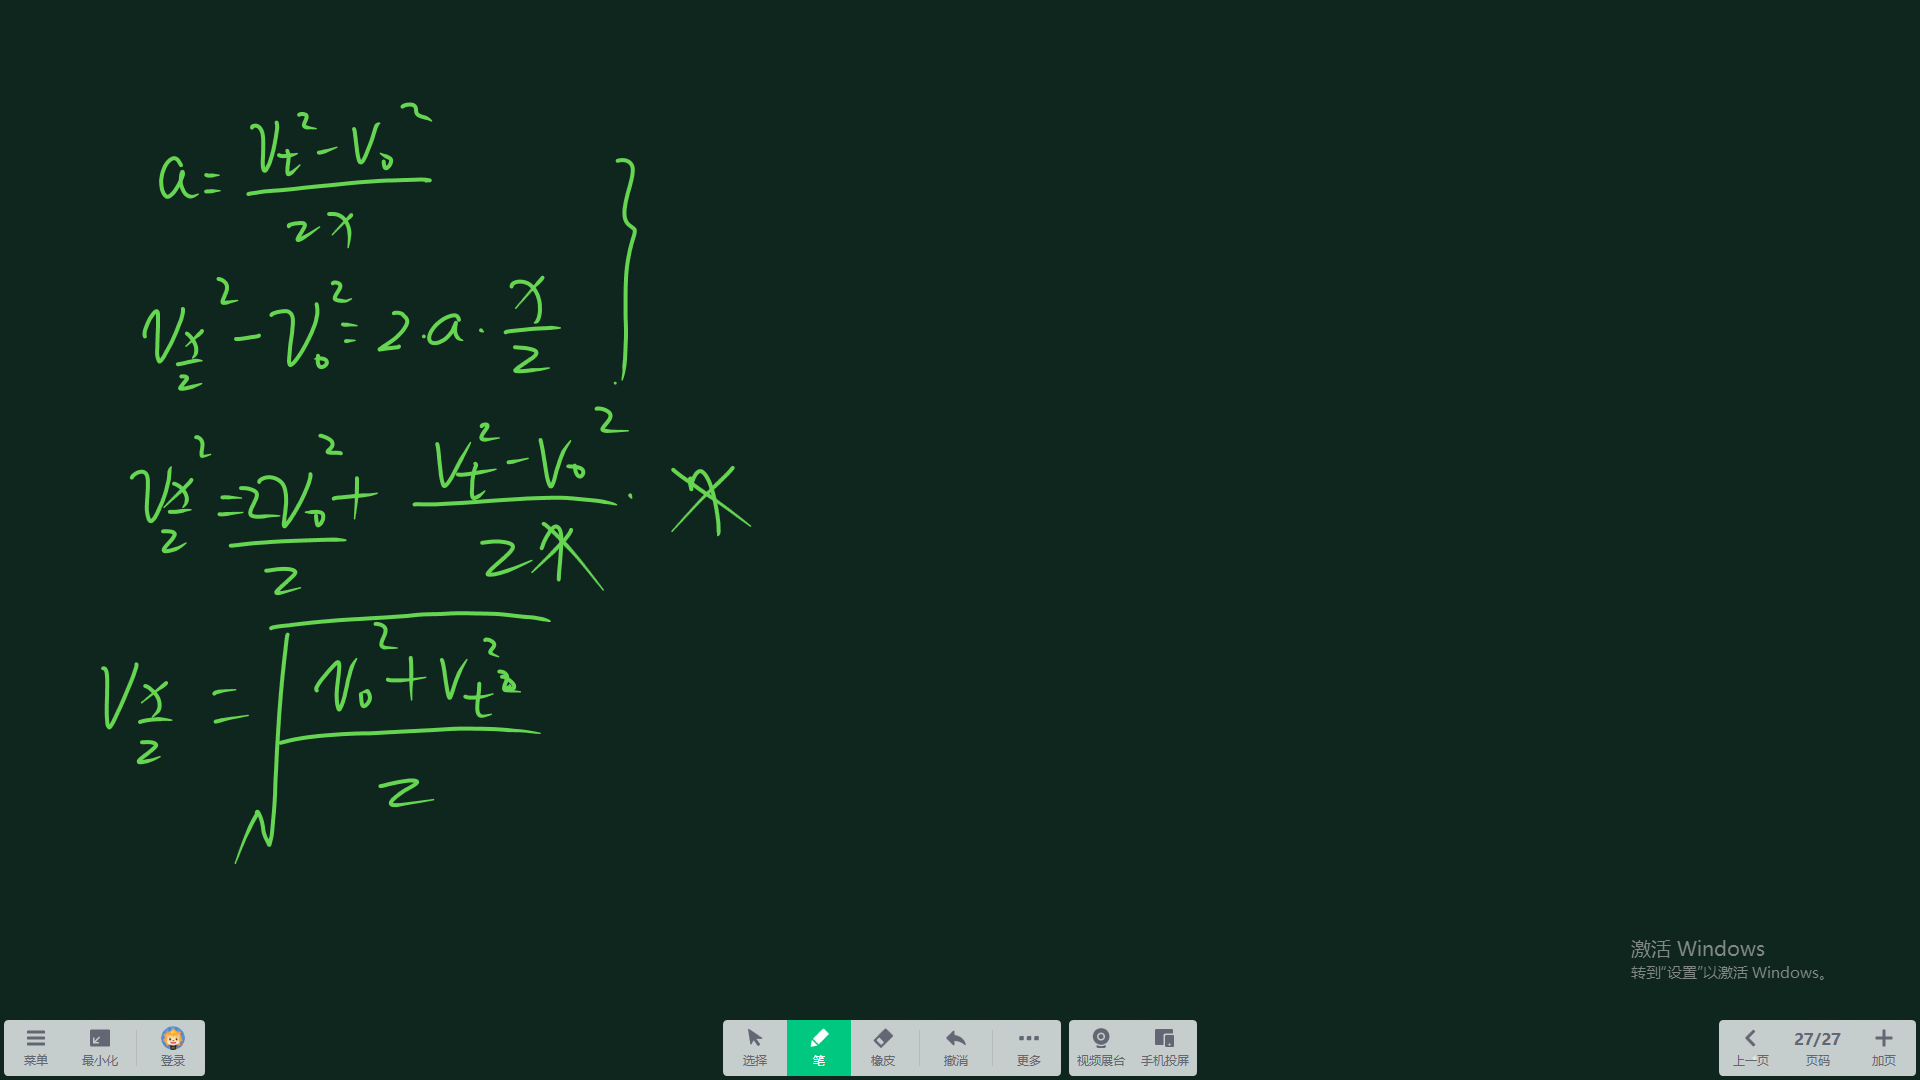 a = (V_t² - V_0²) / 2x
V_{x/2}² - V_0² = 2 · a · x/2
V_{x/2}² = 2V_0²/2 + (V_t² - V_0²)/2x · x
V_{x/2} = √((V_0² + V_t²)/2)
激活 Windows
转到"设置"以激活 Windows。
菜单 最小化 登录 选择 笔 橡皮 撤消 更多 视频展台 手机投屏 上一页 27/27 页码 加页